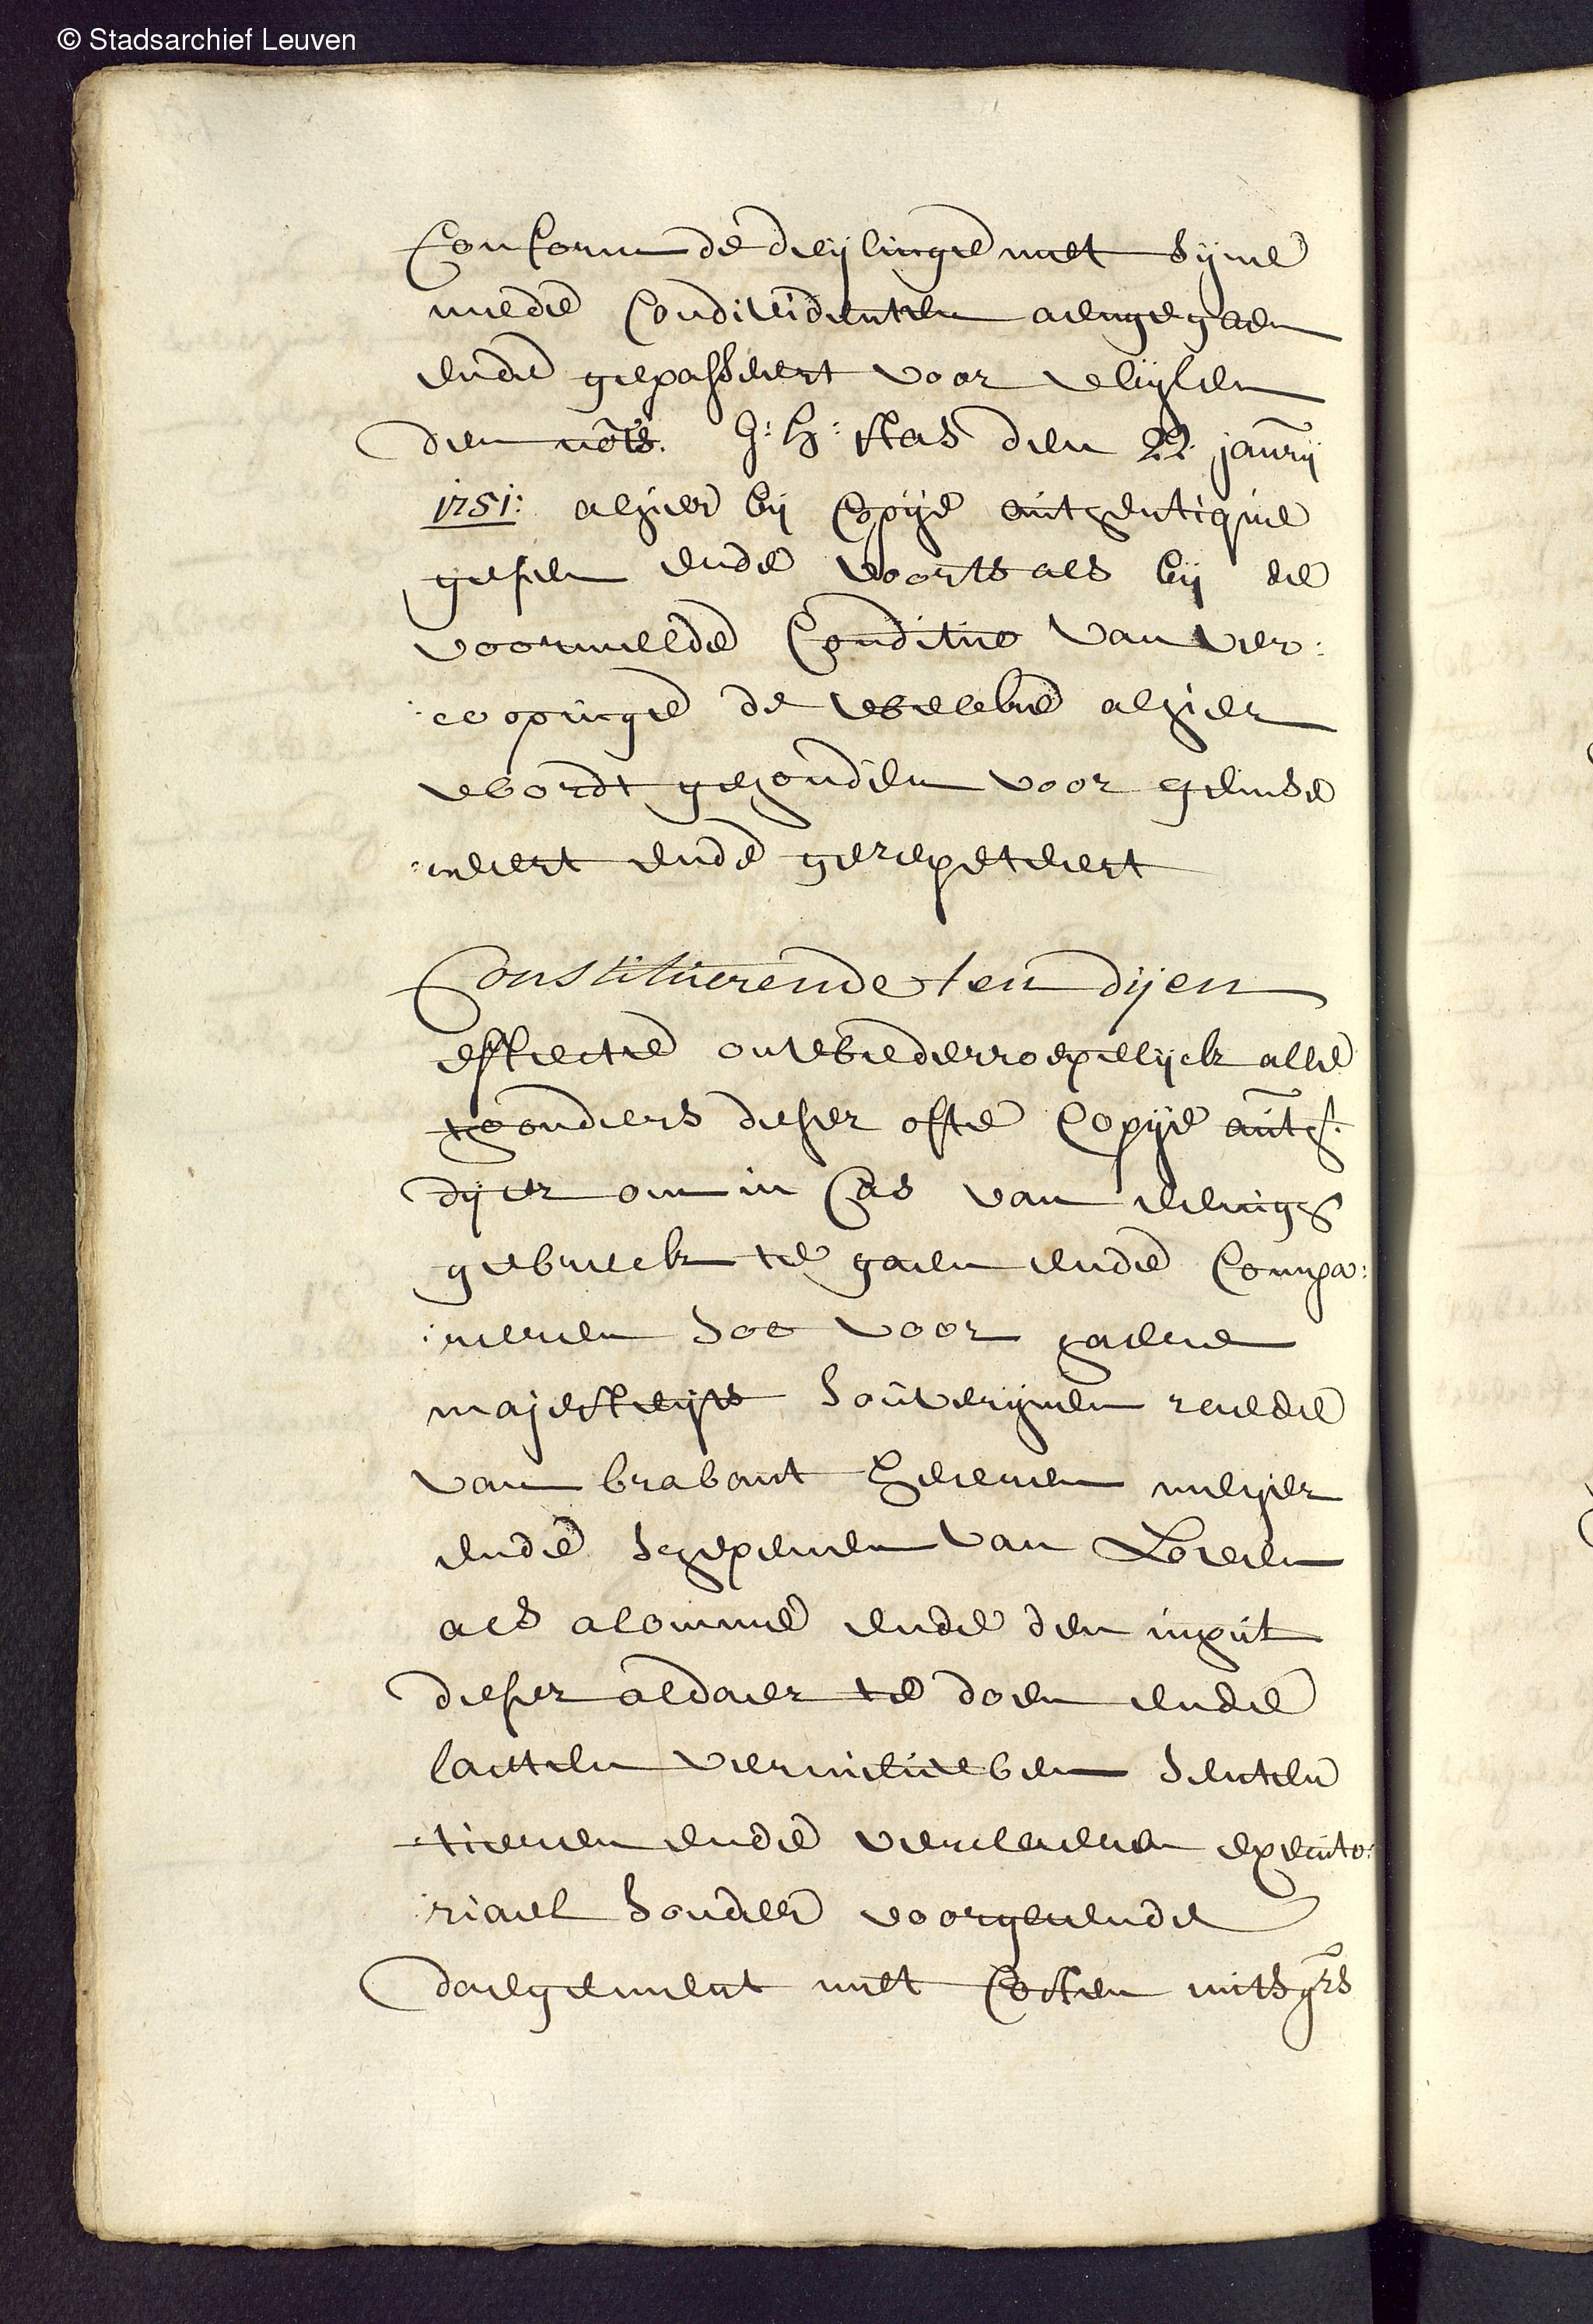 © Stadsarchief Leuven
Conform de deijlinge met sijne
mede Condividenten aengegaen
ende gepasseert voor wijlen
den nots. J: H: Stas den 22 janrij
1751: alhier bij Copije authentique
gesien ende voorts als bij de
voormelde Conditie van ver:
:coopinge de welcke alhier
wordt gehouden voor geinse
:reert ende gerepeteert
Constituerende ten dijen
effecte onwederroepelijck alle
thonders deser ofte Copije auth.
dijer om in Cas van eenigh
gebreck te gaen ende Compa:
:reren soo voor haere
majesteijts souverijnen raede
van brabant heeren meijer
ende schepenen van Loven
als alomme ende den inhout
deser aldaer te doen ende
laeten vernieuwen senten
tieren ende vercleren executo:
:riael sonder voorgaende
daegement met Costen mitsgrs